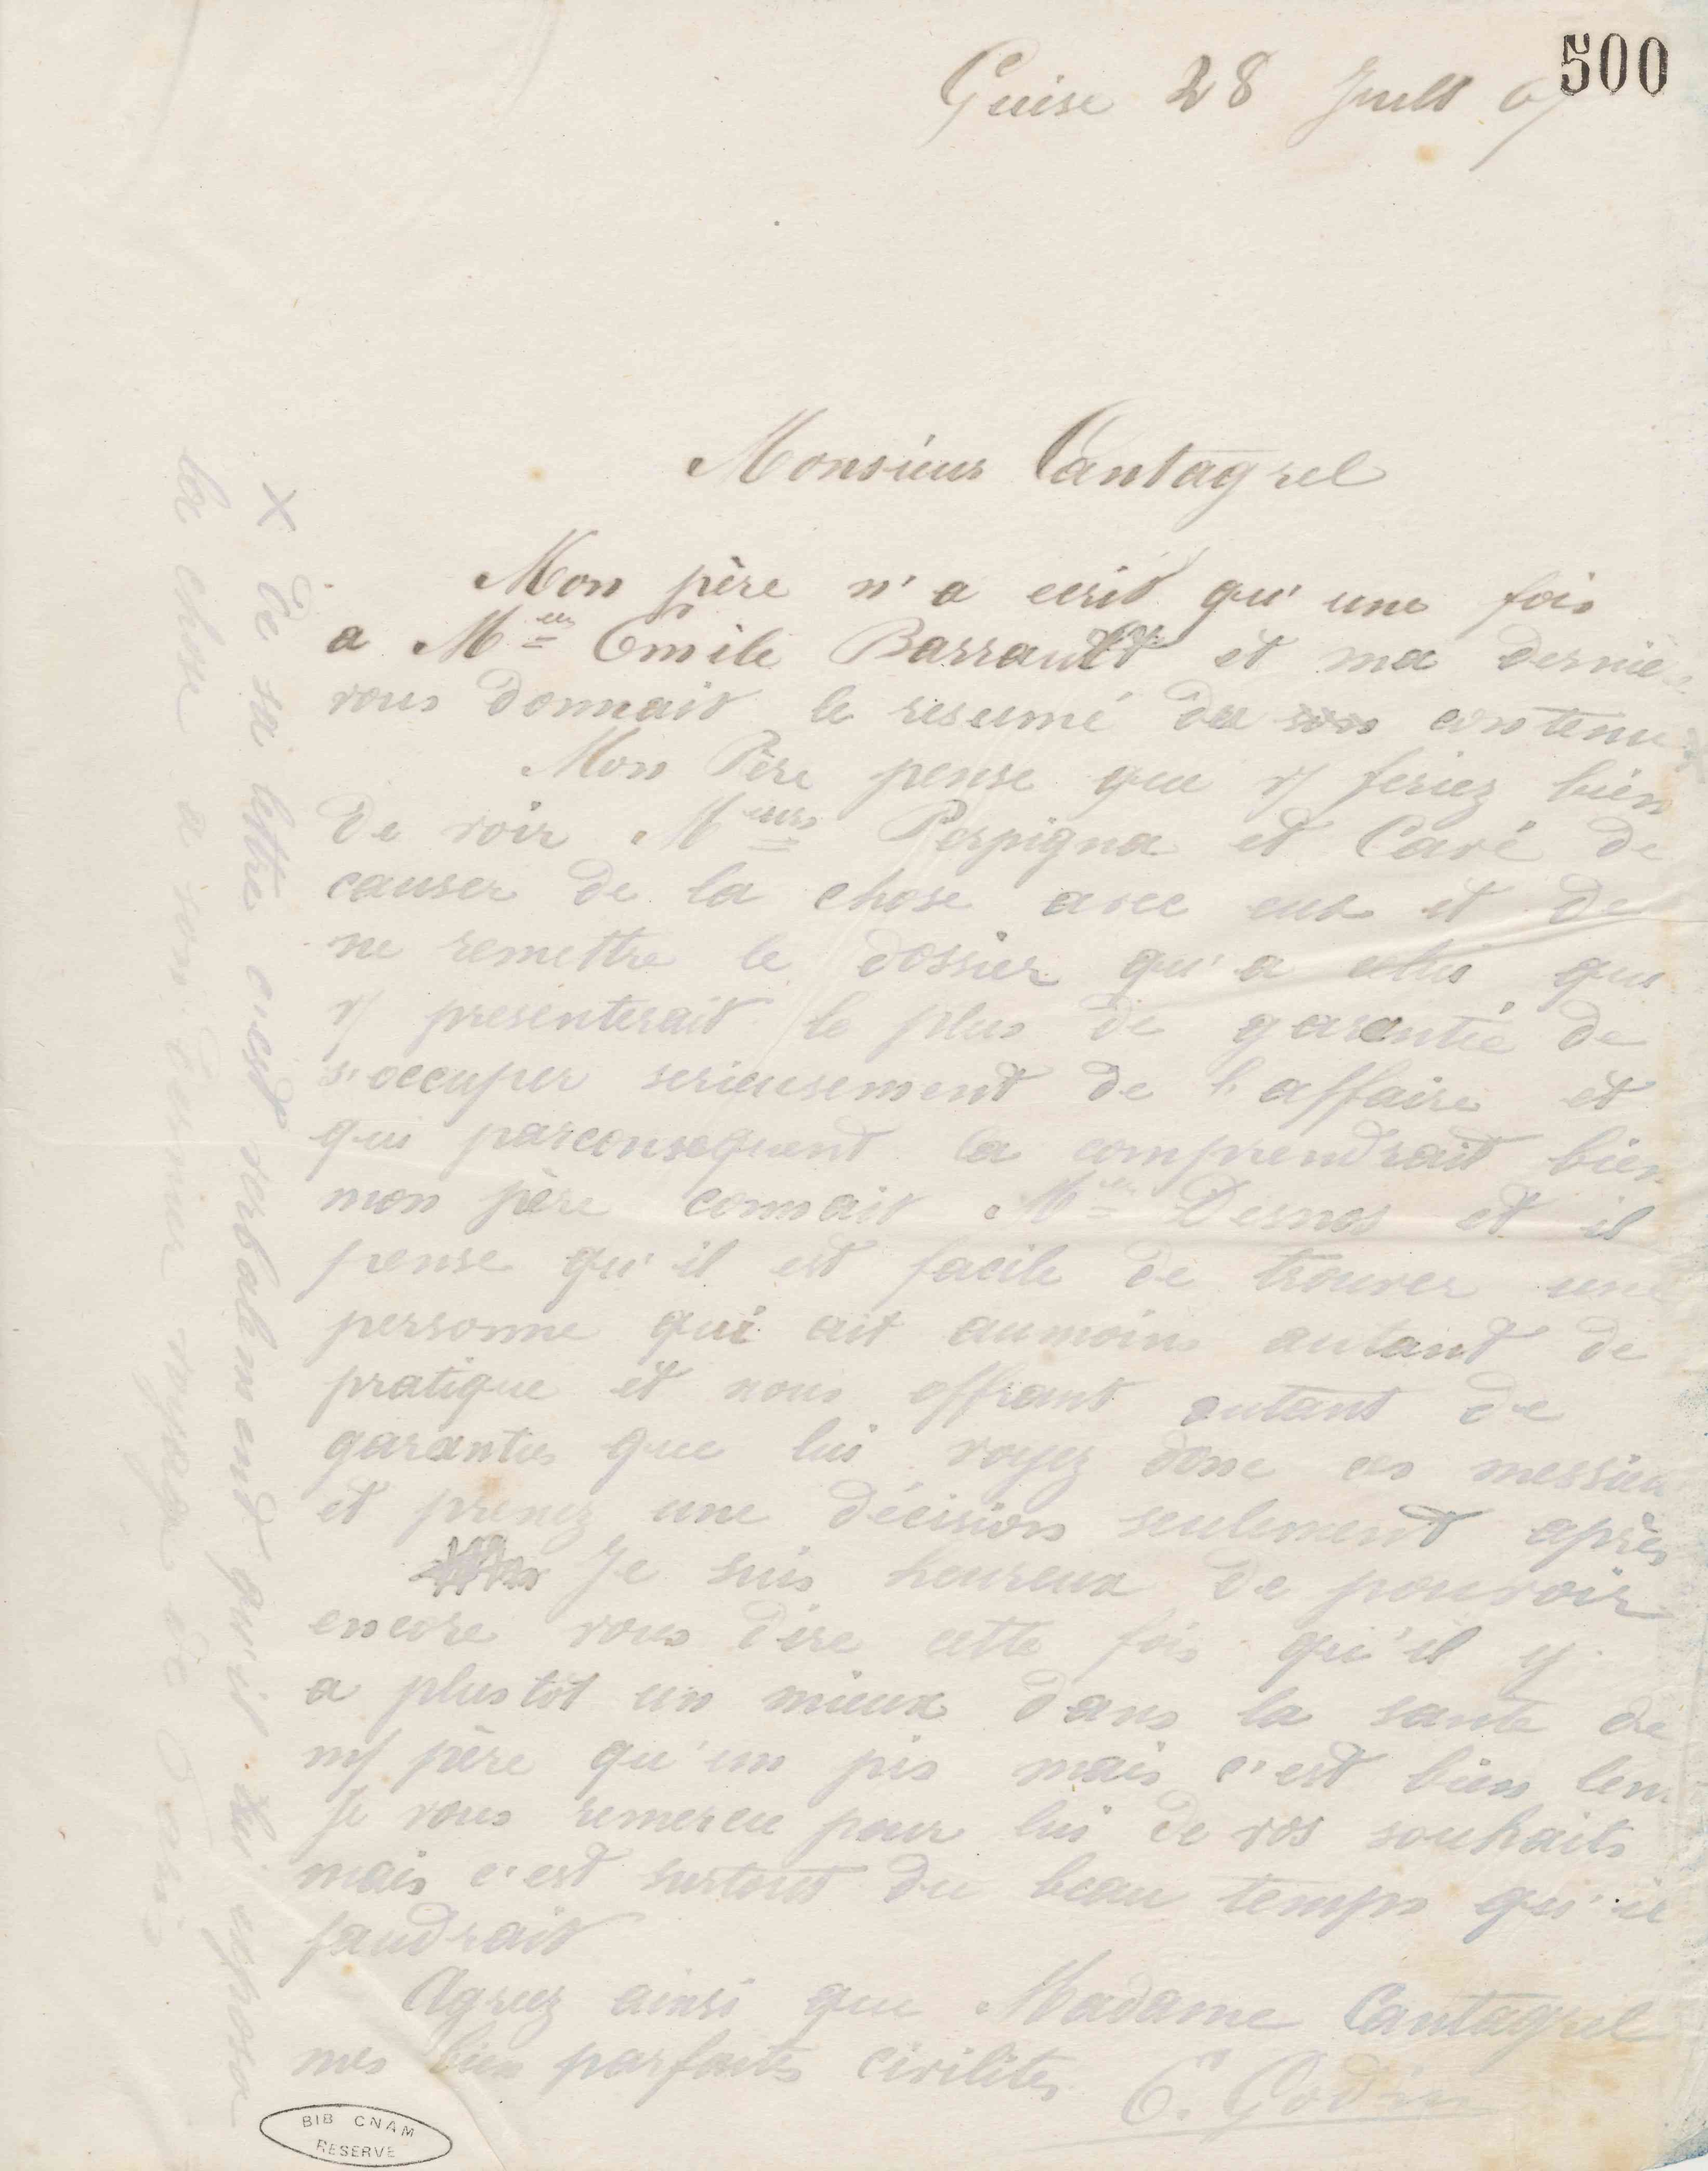 500
Guise 28 Juill 67
Monsieur Cantagrel
Mon père n'a ecrit qu'une fois
a Mr Emile Barrault et ma derniè
vous donnait le resumé du contenu
Mon Père pense que v/ feriez bien
de voir Meurs Perpigna et Cavé de
causer de la chose avec eux et de
ne remettre le dossier qu'a celui qui
v/ presenterait le plus de garantie de
s'occuper serieusement de l'affaire et
qui parconsequent la comprendrait bien
mon père connait Mr Desnos et il
pense qu'il est facile de trouver une
personne qui ait aumoins autant de
pratique et nous offrant autant de
garanties que lui voyez donc ces messieu
et prenez une décision seulement après
Je suis heureux de pouvoir
encore vous dire cette fois qu'il y
a plustôt un mieux dans la santé de
m/ père qu'un pis mais c'est bien len
Je vous remercie pour lui de vos souhaits
mais c'est surtout du beau temps qu'il
faudrait
Agreez ainsi que Madame Cantagrel
mes bien parfaites civilités
E. Godin
X de sa lettre c'est verbalement qu'il lui exposa
la chose a son dernier voyage de Paris
BIB CNAM
RESERVE